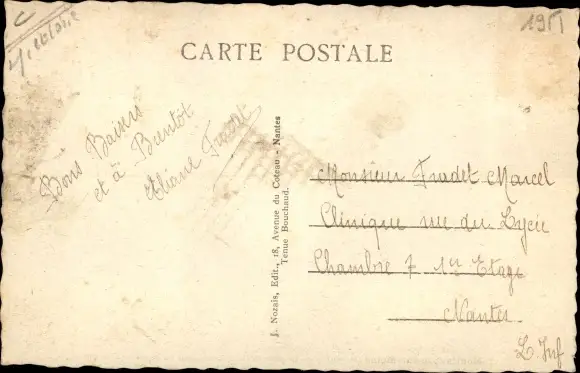 1951
CARTE POSTALE
Bons Baisers
et à Bientôt
Eliane Fradet
J. Nozais, Edit., 18, Avenue du Coteau - Nantes
Tenue Bouchaud.
Monsieur Fradet Marcel
Clinique rue du Lycée
Chambre 7 1er Etage
Nantes
L. Inf